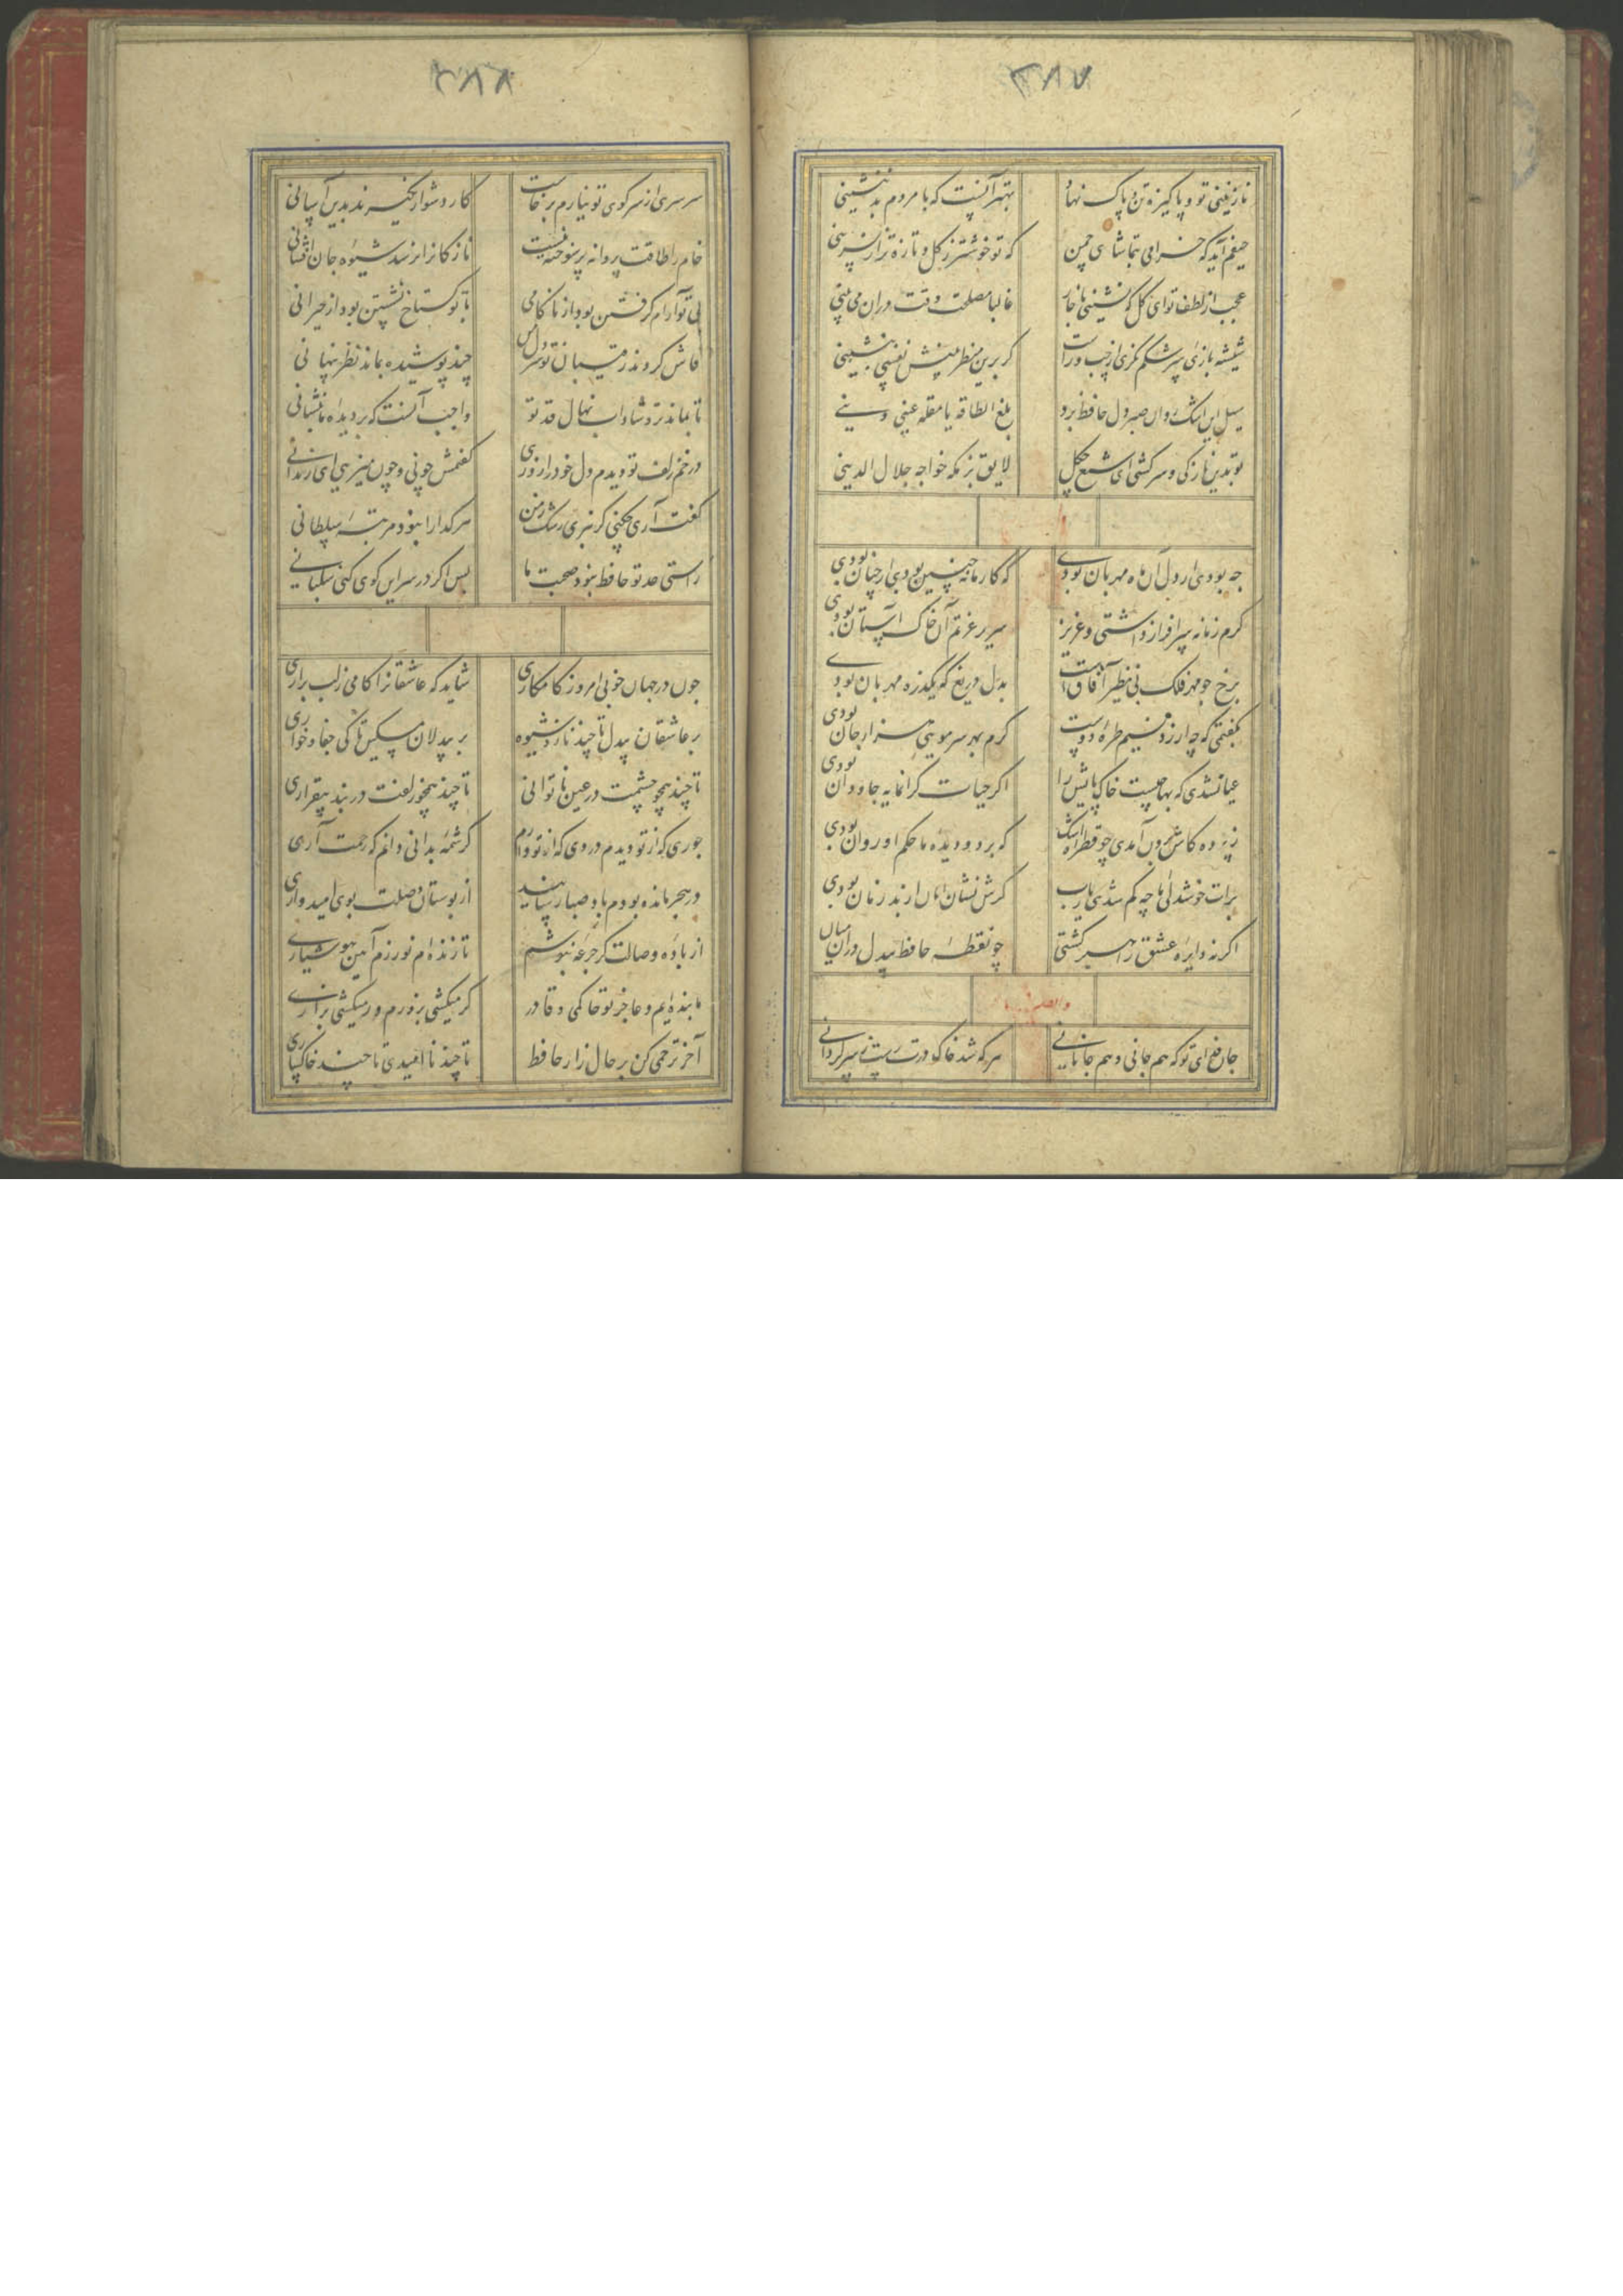 ۳۸۷
نازنینی تو و پاکیزه تن و پاک نهاد بهتر آنست که با مردم بد ننشینی
حیفم آید که خرامی بتماشای چمن که تو خوشتر ز گل و تازه تر از نسرینی
عجب از لطف تو ای گل که نشینی با خار غالبا مصلحت وقت دران می بینی
شیشه بازی سرشکم نگری از چپ و راست گر برین منظر بینش نفسی بنشینی
سیل این اشک روان صبر دل حافظ برد بلغ الطاقه یا مقله عینی بینی
تو بدین نازکی و سرکشی ای شمع چگل لایق بزمگه خواجه جلال الدینی
چه بودی ار دل آن ماه مهربان بودی که کار ما نه چنین بودی ار چنان بودی
گرم زمانه سرافراز داشتی و عزیز سریر عزتم آن خاک آستان بودی
برخ چو مهر فلک بی نظیر آفاق است بدل دریغ که یکذره مهربان بودی
بگفتمی که چه ارزد نسیم طره دوست گرم بهر سر مویی هزار جان بودی
عیان شدی که بها چیست خاک پایش را اگر حیات گرانمایه جاودان بودی
ز پرده کاش برون آمدی چو قطره اشک که بر دو دیده ما حکم او روان بودی
برات خوشدلی ما چه کم شدی یارب گرش نشان امان از بد زمان بودی
اگر نه دایره عشق راه بر گشتی چو نقطه حافظ بیدل دران میان بودی
جان فدای تو که هم جانی و هم جانانی هر که شد خاک درت رست ز سرگردانی
۳۸۸
سرسری از سر کوی تو نیارم برخاست کار دشوار نگیرند بدین آسانی
خام را طاقت پروانه پر سوخته نیست نازکانرا نرسد شیوه جان افشانی
بی تو آرام گرفتن بود از ناکامی با تو گستاخ نشستن بود از حیرانی
فاش کردند رقیبان تو سر دل من چند پوشیده بماند نظر پنهانی
تا بماند تر و شاداب نهال قد تو واجب آنست که بر دیده ما بنشانی
در خم زلف تو دیدم دل خود را روزی گفتمش چونی و چون میزیی ای زندانی
گفت آری چکنی گر نبری رشک ز من هر گدا را نبود مرتبه سلطانی
راستی حد تو حافظ نبود صحبت ما بس اگر در سر این کوی کنی سگبانی
چون در جهان خوبی امروز کامکاری شاید که عاشقانرا کامی ز لب براری
بر عاشقان بیدل تا چند ناز و شیوه بر بیدلان مسکین تا کی جفا و خواری
تا چند همچو چشمت در عین ناتوانی تا چند همچو زلفت در بند بیقراری
جوری که از تو دیدم دردی که از تو دارم گر شمه بدانی دانم که رحمت آری
در هجر مانده بودم باد صبا رسانید از بوستان وصلت بوی امیدواری
از باده وصالت گر جرعه بنوشم تا زنده ام نورزم آیین هوشیاری
ما بنده ایم و عاجز تو حاکمی و قادر گر میکشی بزورم ور میکشی بزاری
آخر ترحمی کن بر حال زار حافظ تا چند ناامیدی تا چند خاکساری